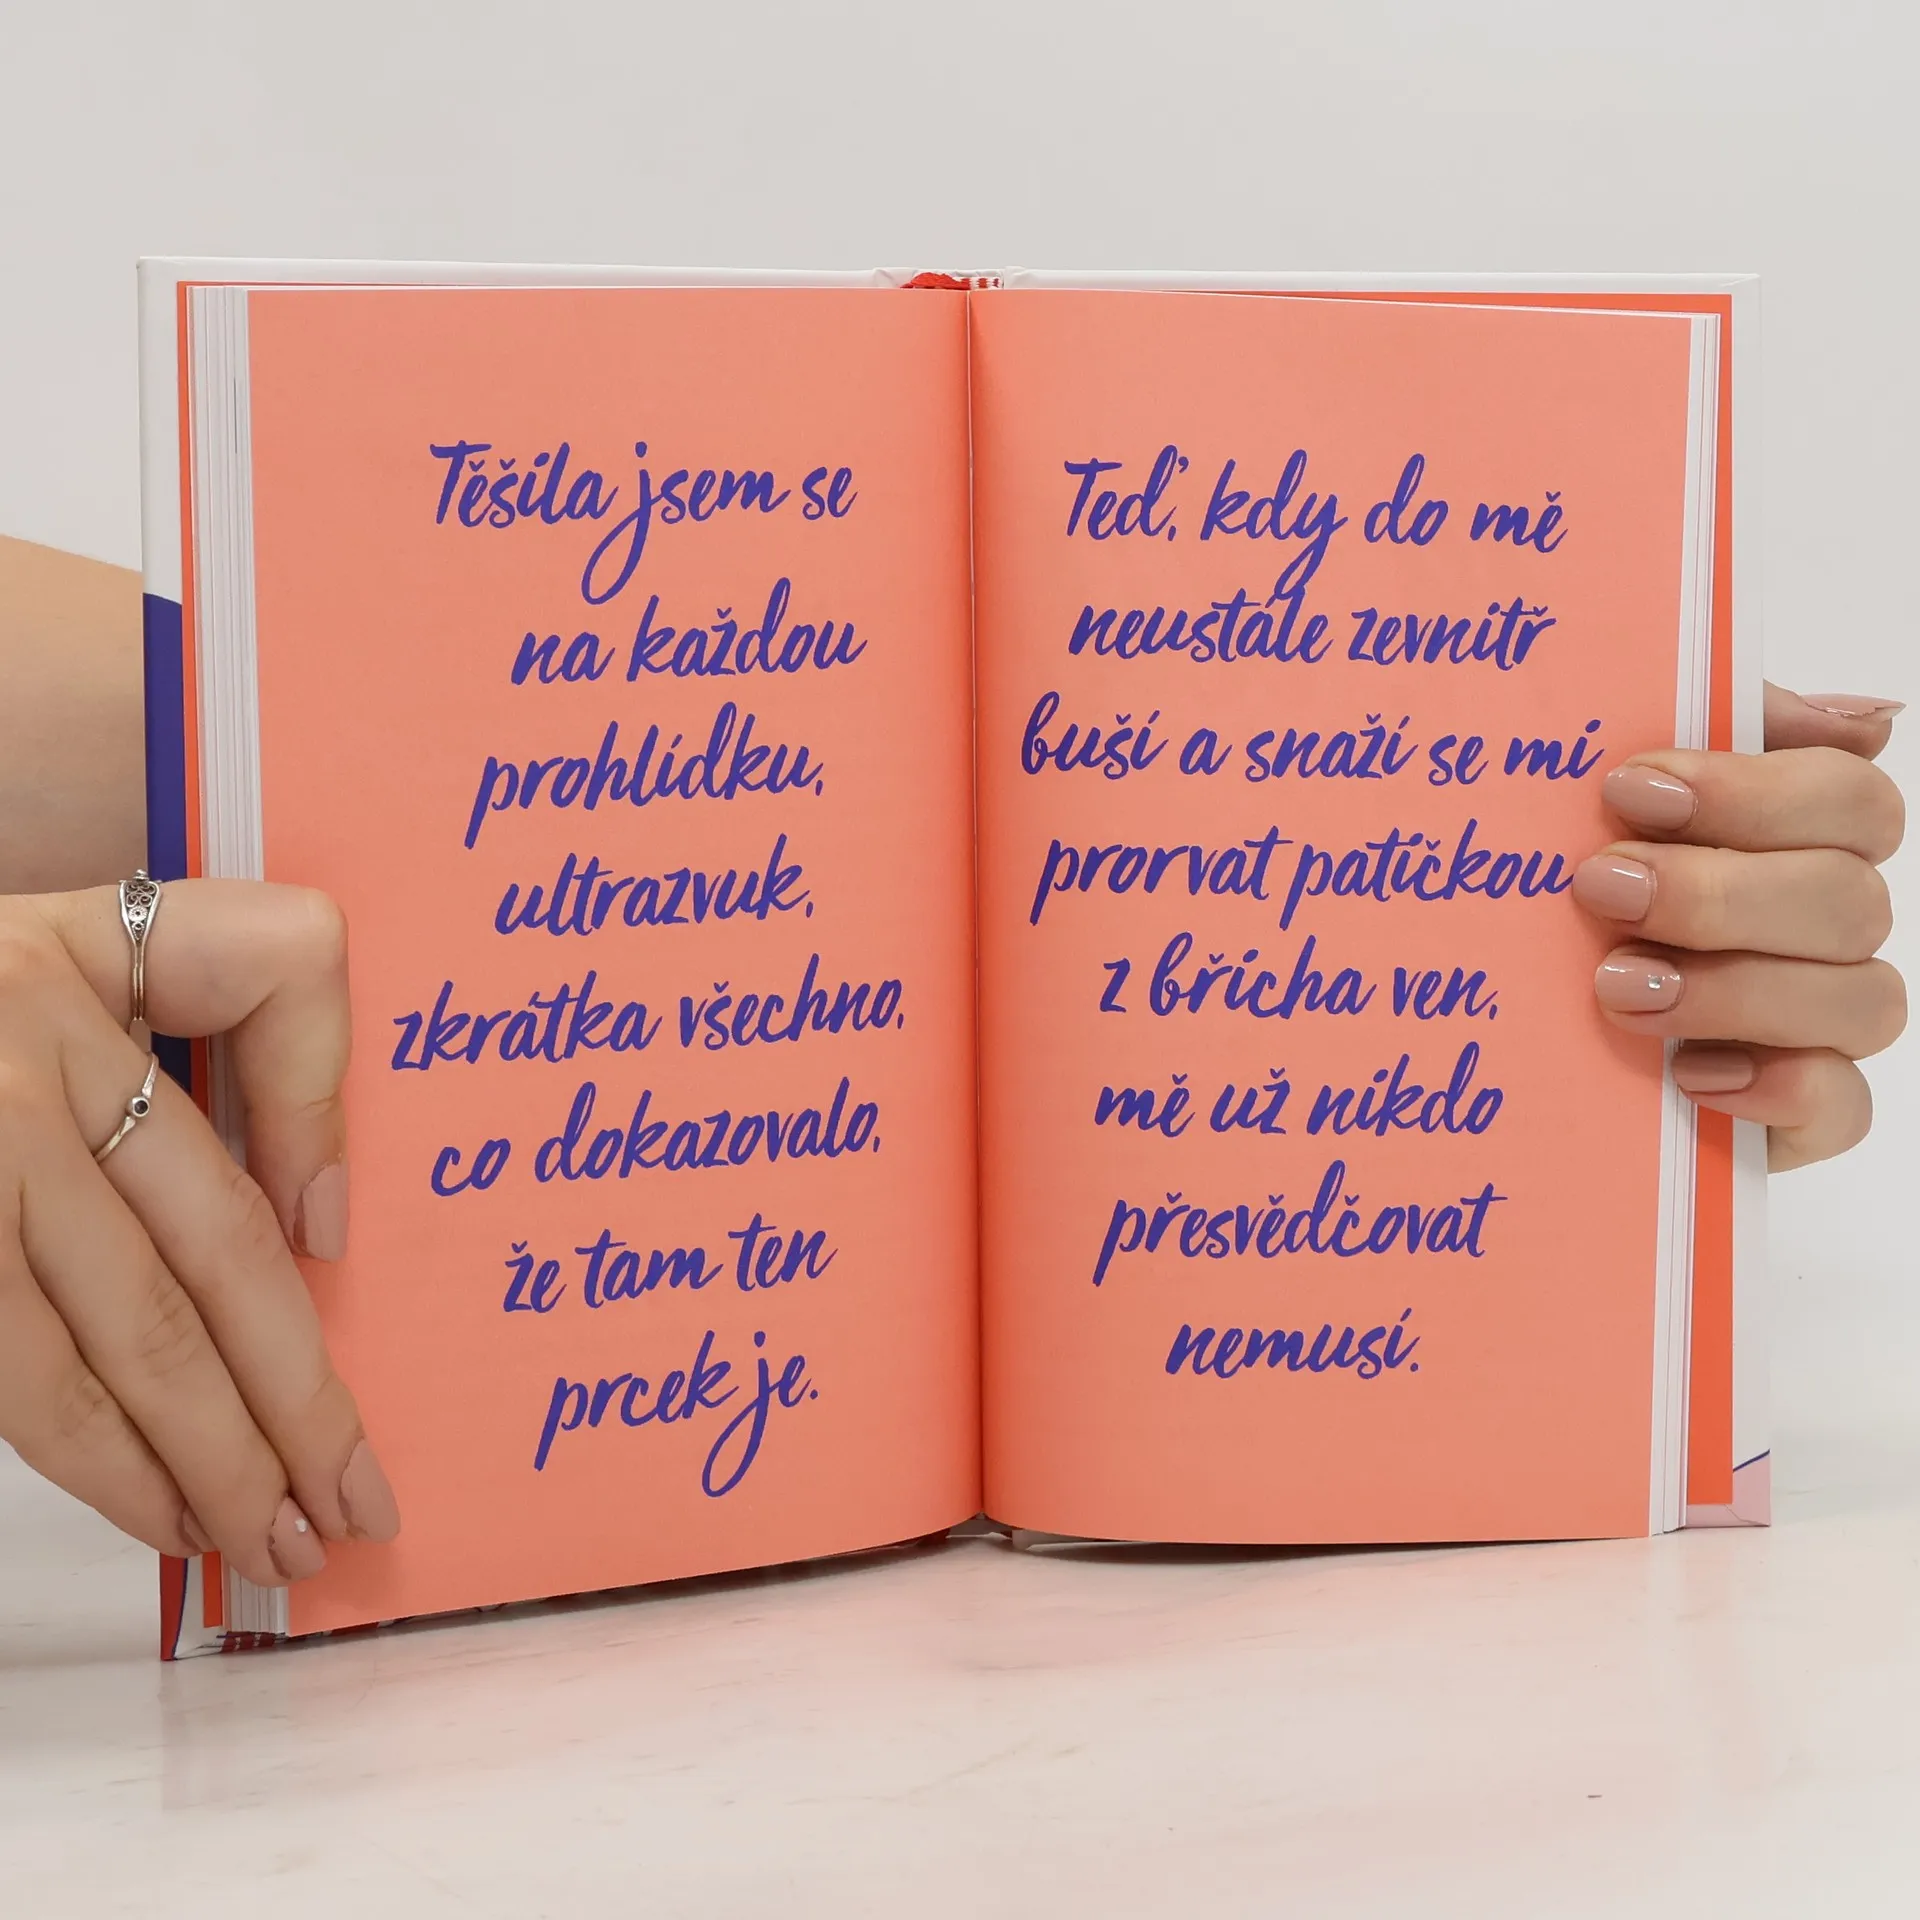 Těšila jsem se
na každou
prohlídku,
ultrazvuk,
zkrátka všechno,
co dokazovalo,
že tam ten
prcek je.
Teď, kdy do mě
neustále zevnitř
buší a snaží se mi
prorvat patičkou
z břicha ven,
mě už nikdo
přesvědčovat
nemusí.